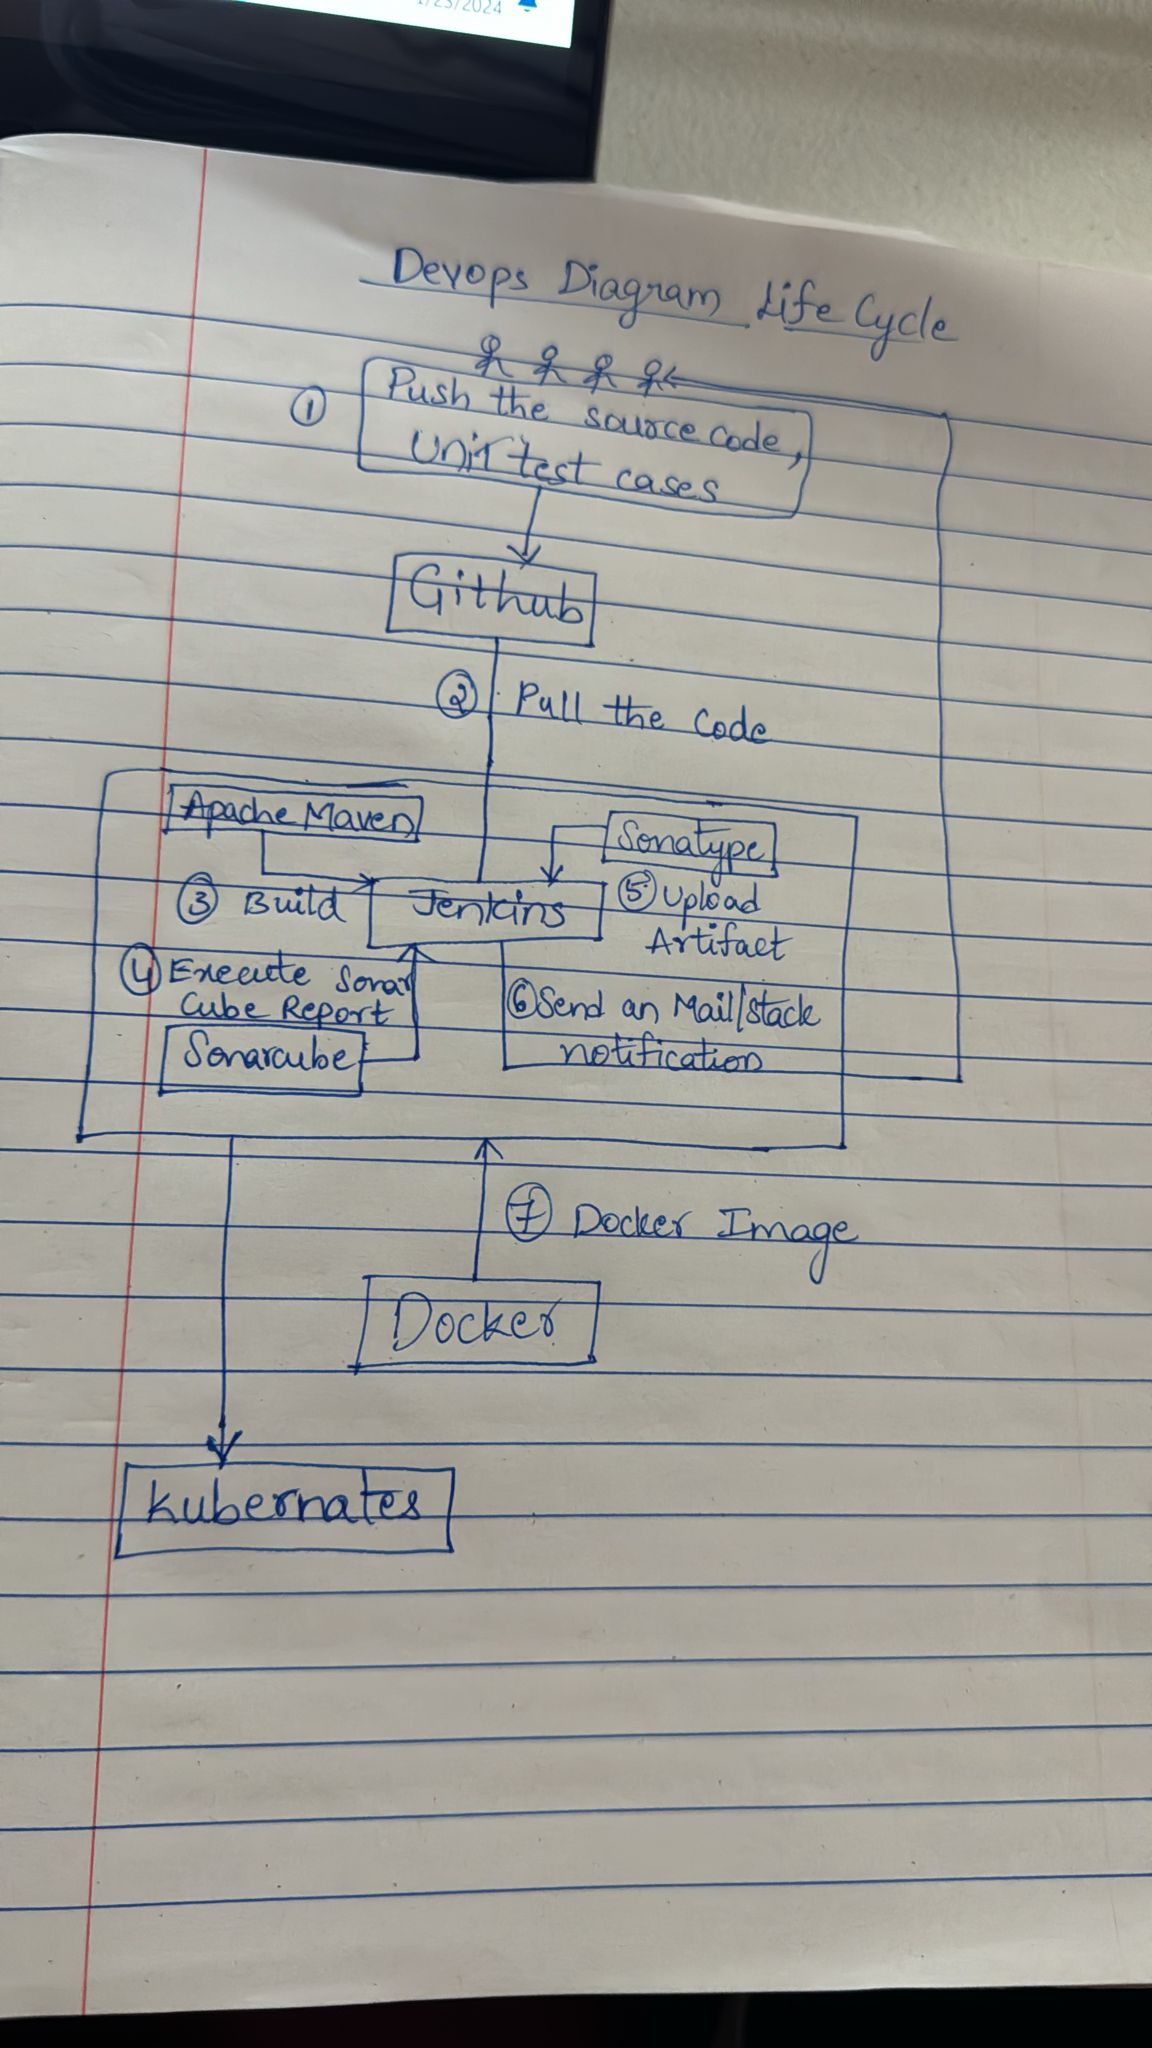 1/23/2024
Devops Diagram Life Cycle
① Push the source code,
Unit test cases
Github
② Pull the code
Apache Maven
Sonatype
③ Build
Jenkins
⑤ Upload
Artifact
④ Execute Sonar
Cube Report
Sonarcube
⑥ Send an Mail/stack
notification
⑦ Docker Image
Docker
Kubernates